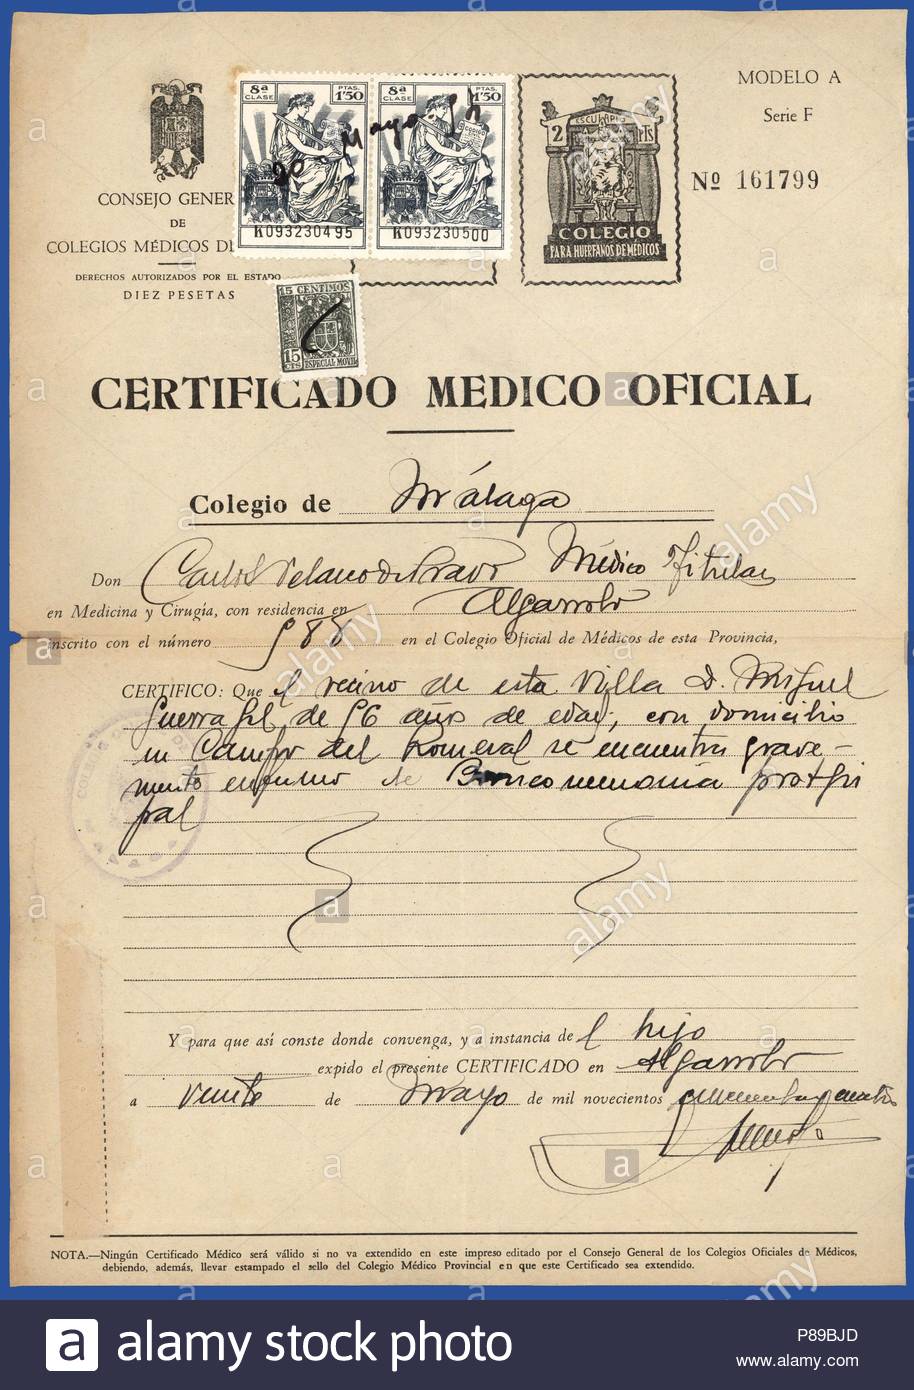 MODELO A
Serie F
Nº 161799
8ª CLASE PTAS. 1'50
8ª CLASE PTAS. 1'50
20 Mayo
K09323049 5
K0932305 00
ESCULAPIO
2 PTS
COLEGIO
PARA HUERFANOS DE MÉDICOS
CONSEJO GENER
DE
COLEGIOS MÉDICOS DE
DERECHOS AUTORIZADOS POR EL ESTADO
DIEZ PESETAS
15 CENTIMOS
15 CTS ESPECIAL MOVIL
CERTIFICADO MEDICO OFICIAL
Colegio de Málaga
Don Carlos Velasco de Bravo Médico Titular
en Medicina y Cirugía, con residencia en Algarrobo
inscrito con el número 988 en el Colegio Oficial de Médicos de esta Provincia,
CERTIFICO: Que el vecino de esta Villa D. Miguel
Guerra Gil, de 56 años de edad, con domicilio
en Campo del Romeral se encuentra grave-
mente enfermo de
Y para que así conste donde convenga, y a instancia de el hijo
expido el presente CERTIFICADO en Algarrobo
a veinte de Mayo de mil novecientos cincuenta y cuatro
NOTA.—Ningún Certificado Médico será válido si no va extendido en este impreso editado por el Consejo General de los Colegios Oficiales de Médicos,
debiendo, además, llevar estampado el sello del Colegio Médico Provincial en que este Certificado sea extendido.
a alamy stock photo
P89BJD
www.alamy.com